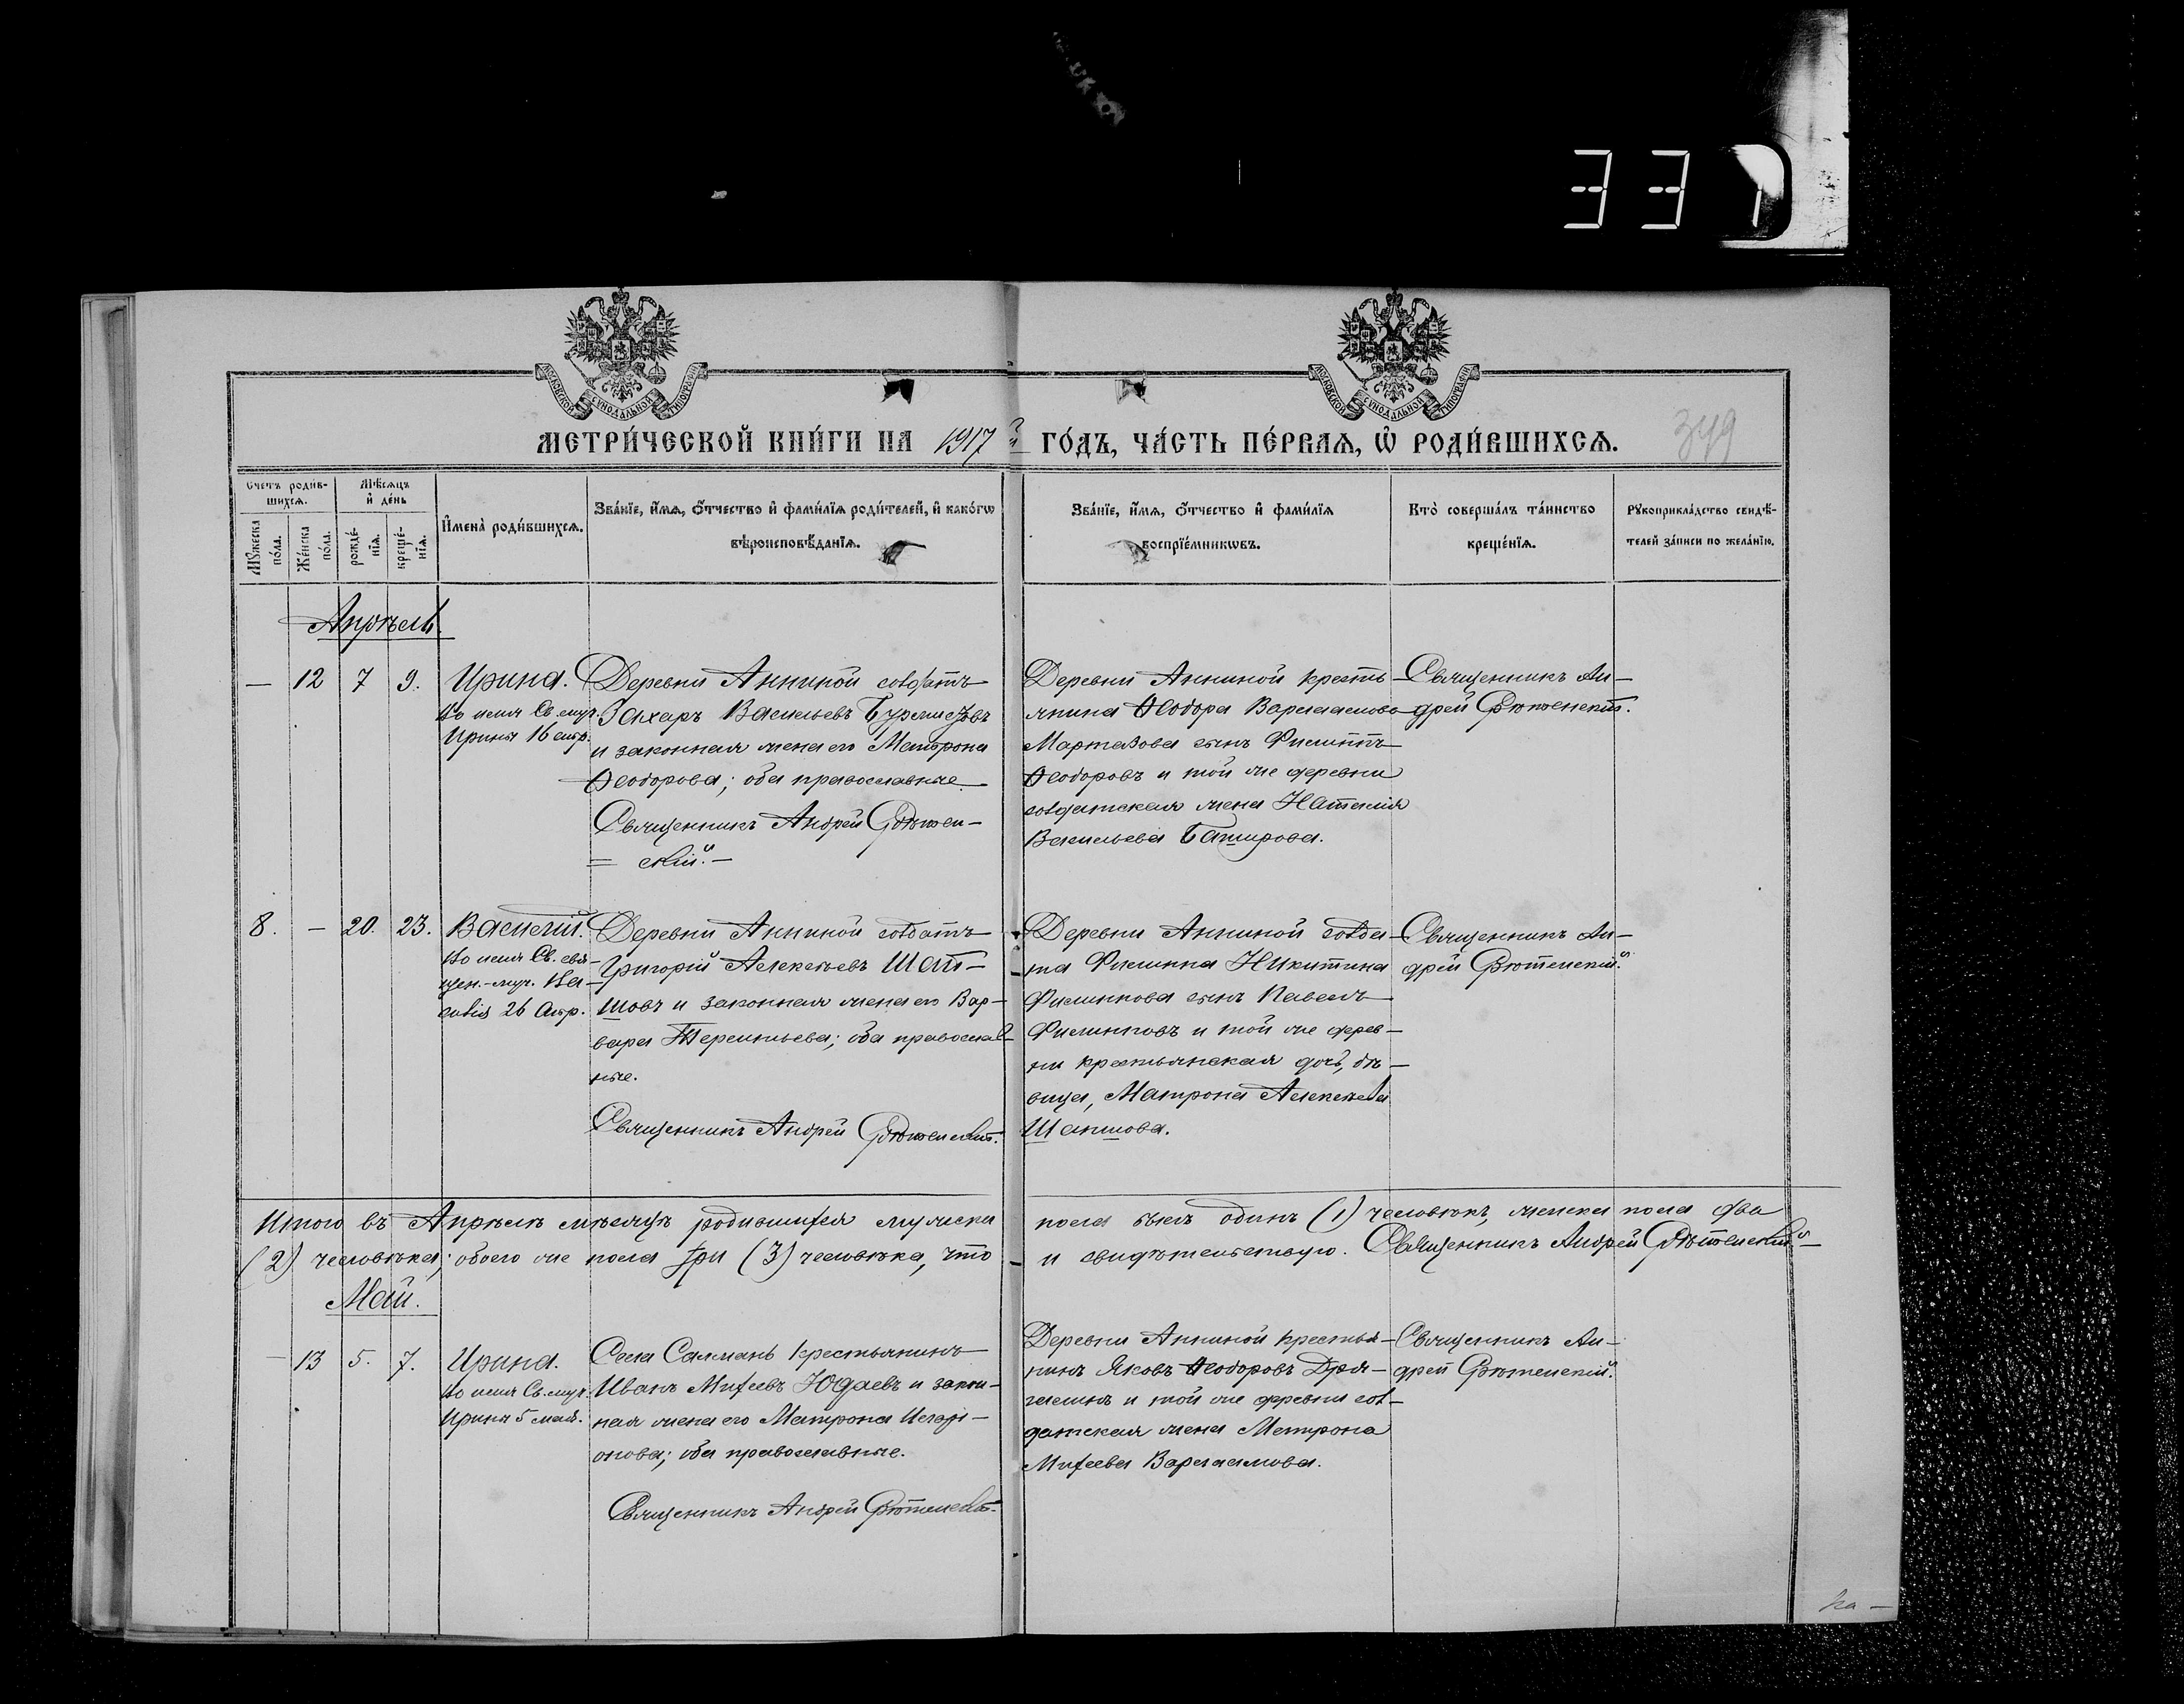 337
МОСКОВСКОЙ СѴНОДАЛЬНОЙ ТИПОГРАФІИ
МОСКОВСКОЙ СѴНОДАЛЬНОЙ ТИПОГРАФІИ
МЕТРИ́ЧЕСКОЙ КНИ́ГИ НА 1917 й ГО́ДЪ, ЧА́СТЬ ПЕ́РВАѦ, Ѡ РОДИ́ВШИХСѦ.
349
Счетъ роди́в-
шихсѧ.
Мꙋжеска по́ла.
Же́нска по́ла.
Мѣ́сѧцъ
и҆ де́нь
рожде́-нїѧ.
креще́-нїѧ.
И҆мена̀ роди́вшихсѧ.
Зва́нїе, и҆́мѧ, ѻ҆́тчество и҆ фами́лїѧ роди́телей, и҆ како́гѡ
вѣроисповѣ́данїѧ.
Зва́нїе, и҆́мѧ, ѻ҆́тчество и҆ фами́лїѧ
воспрїе́мникѡвъ.
Кто̀ соверша́лъ та́инство
креще́нїѧ.
Рꙋкоприкла́дство свидѣ́-
телей за́писи по жела́нїю.
Апрѣль.
— 12 7 9.
Ирина.
Во имя Св. муч.
Ирины 16 апр.
Деревни Анниной солдатъ
Захаръ Васильевъ Бурмистровъ
и законная жена его Матрона
Ѳеодорова; оба православные.
Священникъ Андрей
= скій. —
Деревни Анниной кресть-
янина Ѳеодора Варлаамова
Мартазова сынъ Филиппъ
Ѳеодоровъ и той же деревни
солдатская жена Наталія
Васильева Баширова.
Священникъ Ан-
дрей
8. — 20. 23.
Василій.
Во имя Св. свя-
щен.-муч. Ва-
силія 26 Апр.
Деревни Анниной солдатъ
Григорій Алексѣевъ Шап-
шовъ и законная жена его Вар-
вара Терентьева; оба православ-
ные.
Священникъ Андрей
Деревни Анниной солда-
та Филиппа Никитина
Филиппова сынъ Павелъ
Филипповъ и той же дерев-
ни крестьянская дочь, дѣ-
вица, Матрона Алексѣева
Шапшова.
Священникъ Ан-
дрей
Итого въ Апрѣлѣ мѣсяцѣ родившихся мужска пола былъ одинъ (1) человѣкъ, женска пола два
(2) человѣка; обоего же пола три (3) человѣка, что и свидѣтельствую. Священникъ Андрей
Май.
— 13 5. 7.
Ирина.
Во имя Св. муч.
Ирины 5 мая.
Села Салмань крестьянинъ
Иванъ Миѳеевъ Юдаевъ и закон-
ная жена его Матрона Иларі-
онова; оба православные.
Священникъ Андрей
Деревни Анниной крестья-
нинъ Яковъ Ѳеодоровъ
и той же деревни сол-
датская жена Матрона
Миѳеева Варлаамова.
Священникъ Ан-
дрей